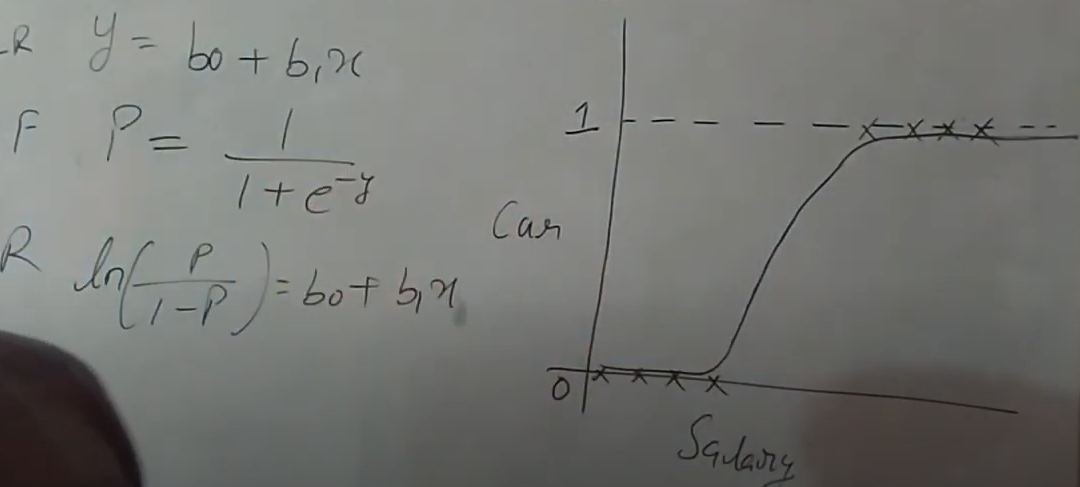 R y = b0 + b1x
F P = 1 / (1 + e^-y)
R ln(P / (1-P)) = b0 + b1x
1
Car
0
Salary